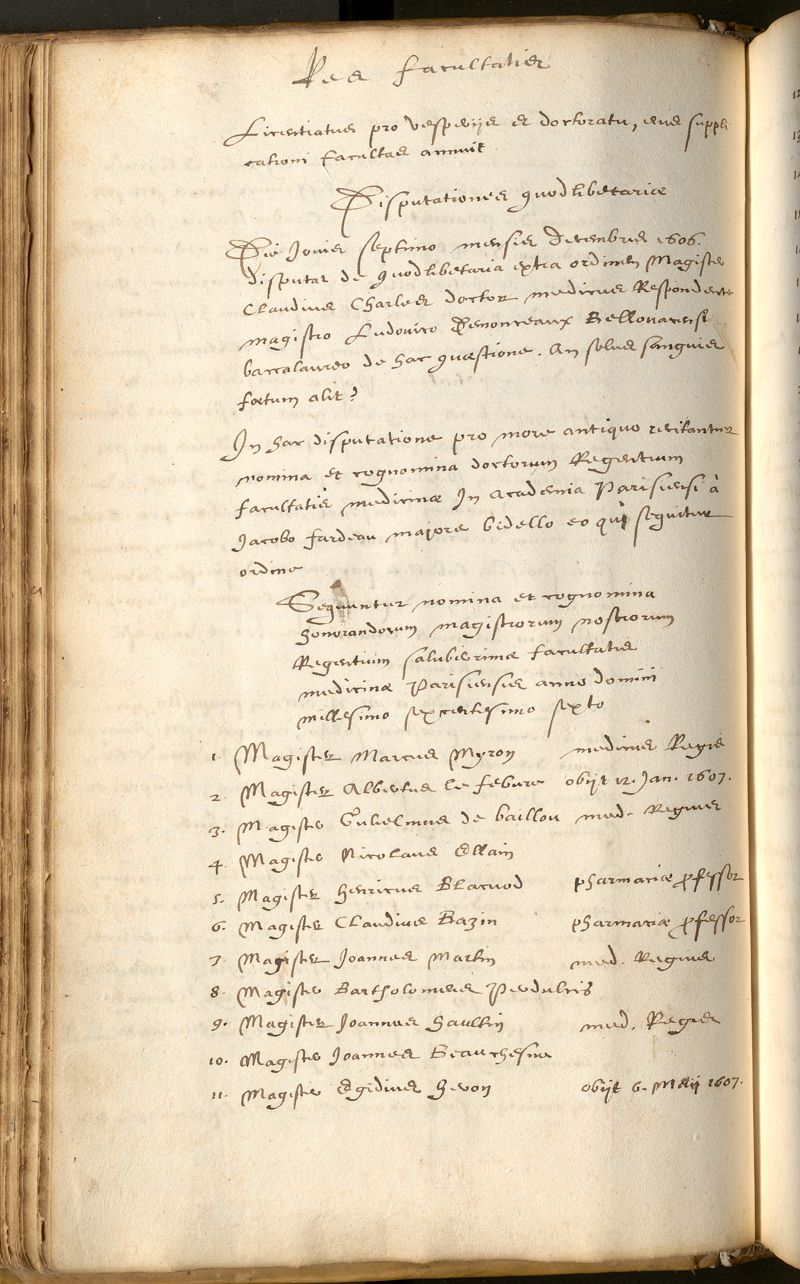 Res facultatis
Licentiatus pro vesperijs et doctoratu, eius suppli
cationi facultas annuit.
Disputationes quodlibetariæ
Die Jovis septimo mensis decembris 1606.
disputat de quodlibetaria extra ordinem Magister
Claudius Charles doctor medicus Respondente
magistro Ludovico Bellovacensi
baccalaureo de hac quæstione. An solus sanguis
fœtum alit?
In hac disputatione pro more antiquo recitantur
nomina et cognomina doctorum Regentium
facultatis medicinæ In Academia Parisiensi à
Jacobo fardeau majore bidello eo qui sequitur
ordine
Sequuntur nomina et cognomina
honorandorum magistrorum nostrorum
Regentium saluberrimæ facultatis
medicinæ Parisiensis anno domini
millesimo sexcentesimo sexto
1. Magister Marcus Myron medicus Regis
2. Magister Albertus le febure obijt 12. Jan. 1607.
3. Magister Gulielmus de baillou med. Regius
4. Magister Nicolaus Ellain
5. Magister Henricus Blacuod pharmaciæ professor
6. Magister Claudius Bazin pharmaciæ professor
7. Magister Joannes Martin med. Regius
8. Magister Bartholomeus Perdulcis
9. Magister Joannes Haultin med. Regis
10. Magister Joannes Beauchesne
11. Magister Egidius Heron obijt 6. Maij 1607.